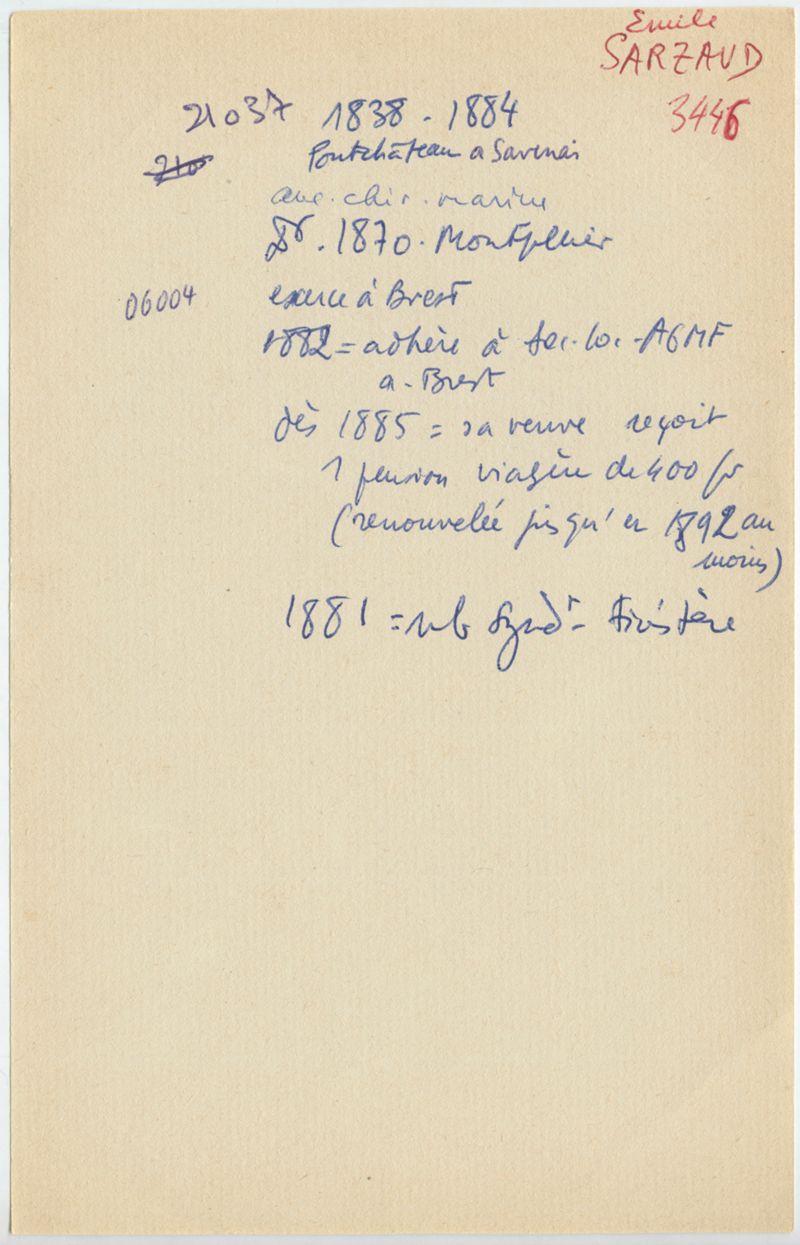 Emile
SARZAUD
3446
21037 1838 - 1884
210
Pontchâteau a Savenai
anc. chir. marine
Dr. 1870. Montpellier
06004 exerce à Brest
1882 = adhère à Sec. loc. AGMF
a. Brest
dès 1885 = sa veuve reçoit
1 pension viagère de 400 fr
(renouvelée jusqu'en 1892 au
moins)
1881 = mb Synd - Finistère